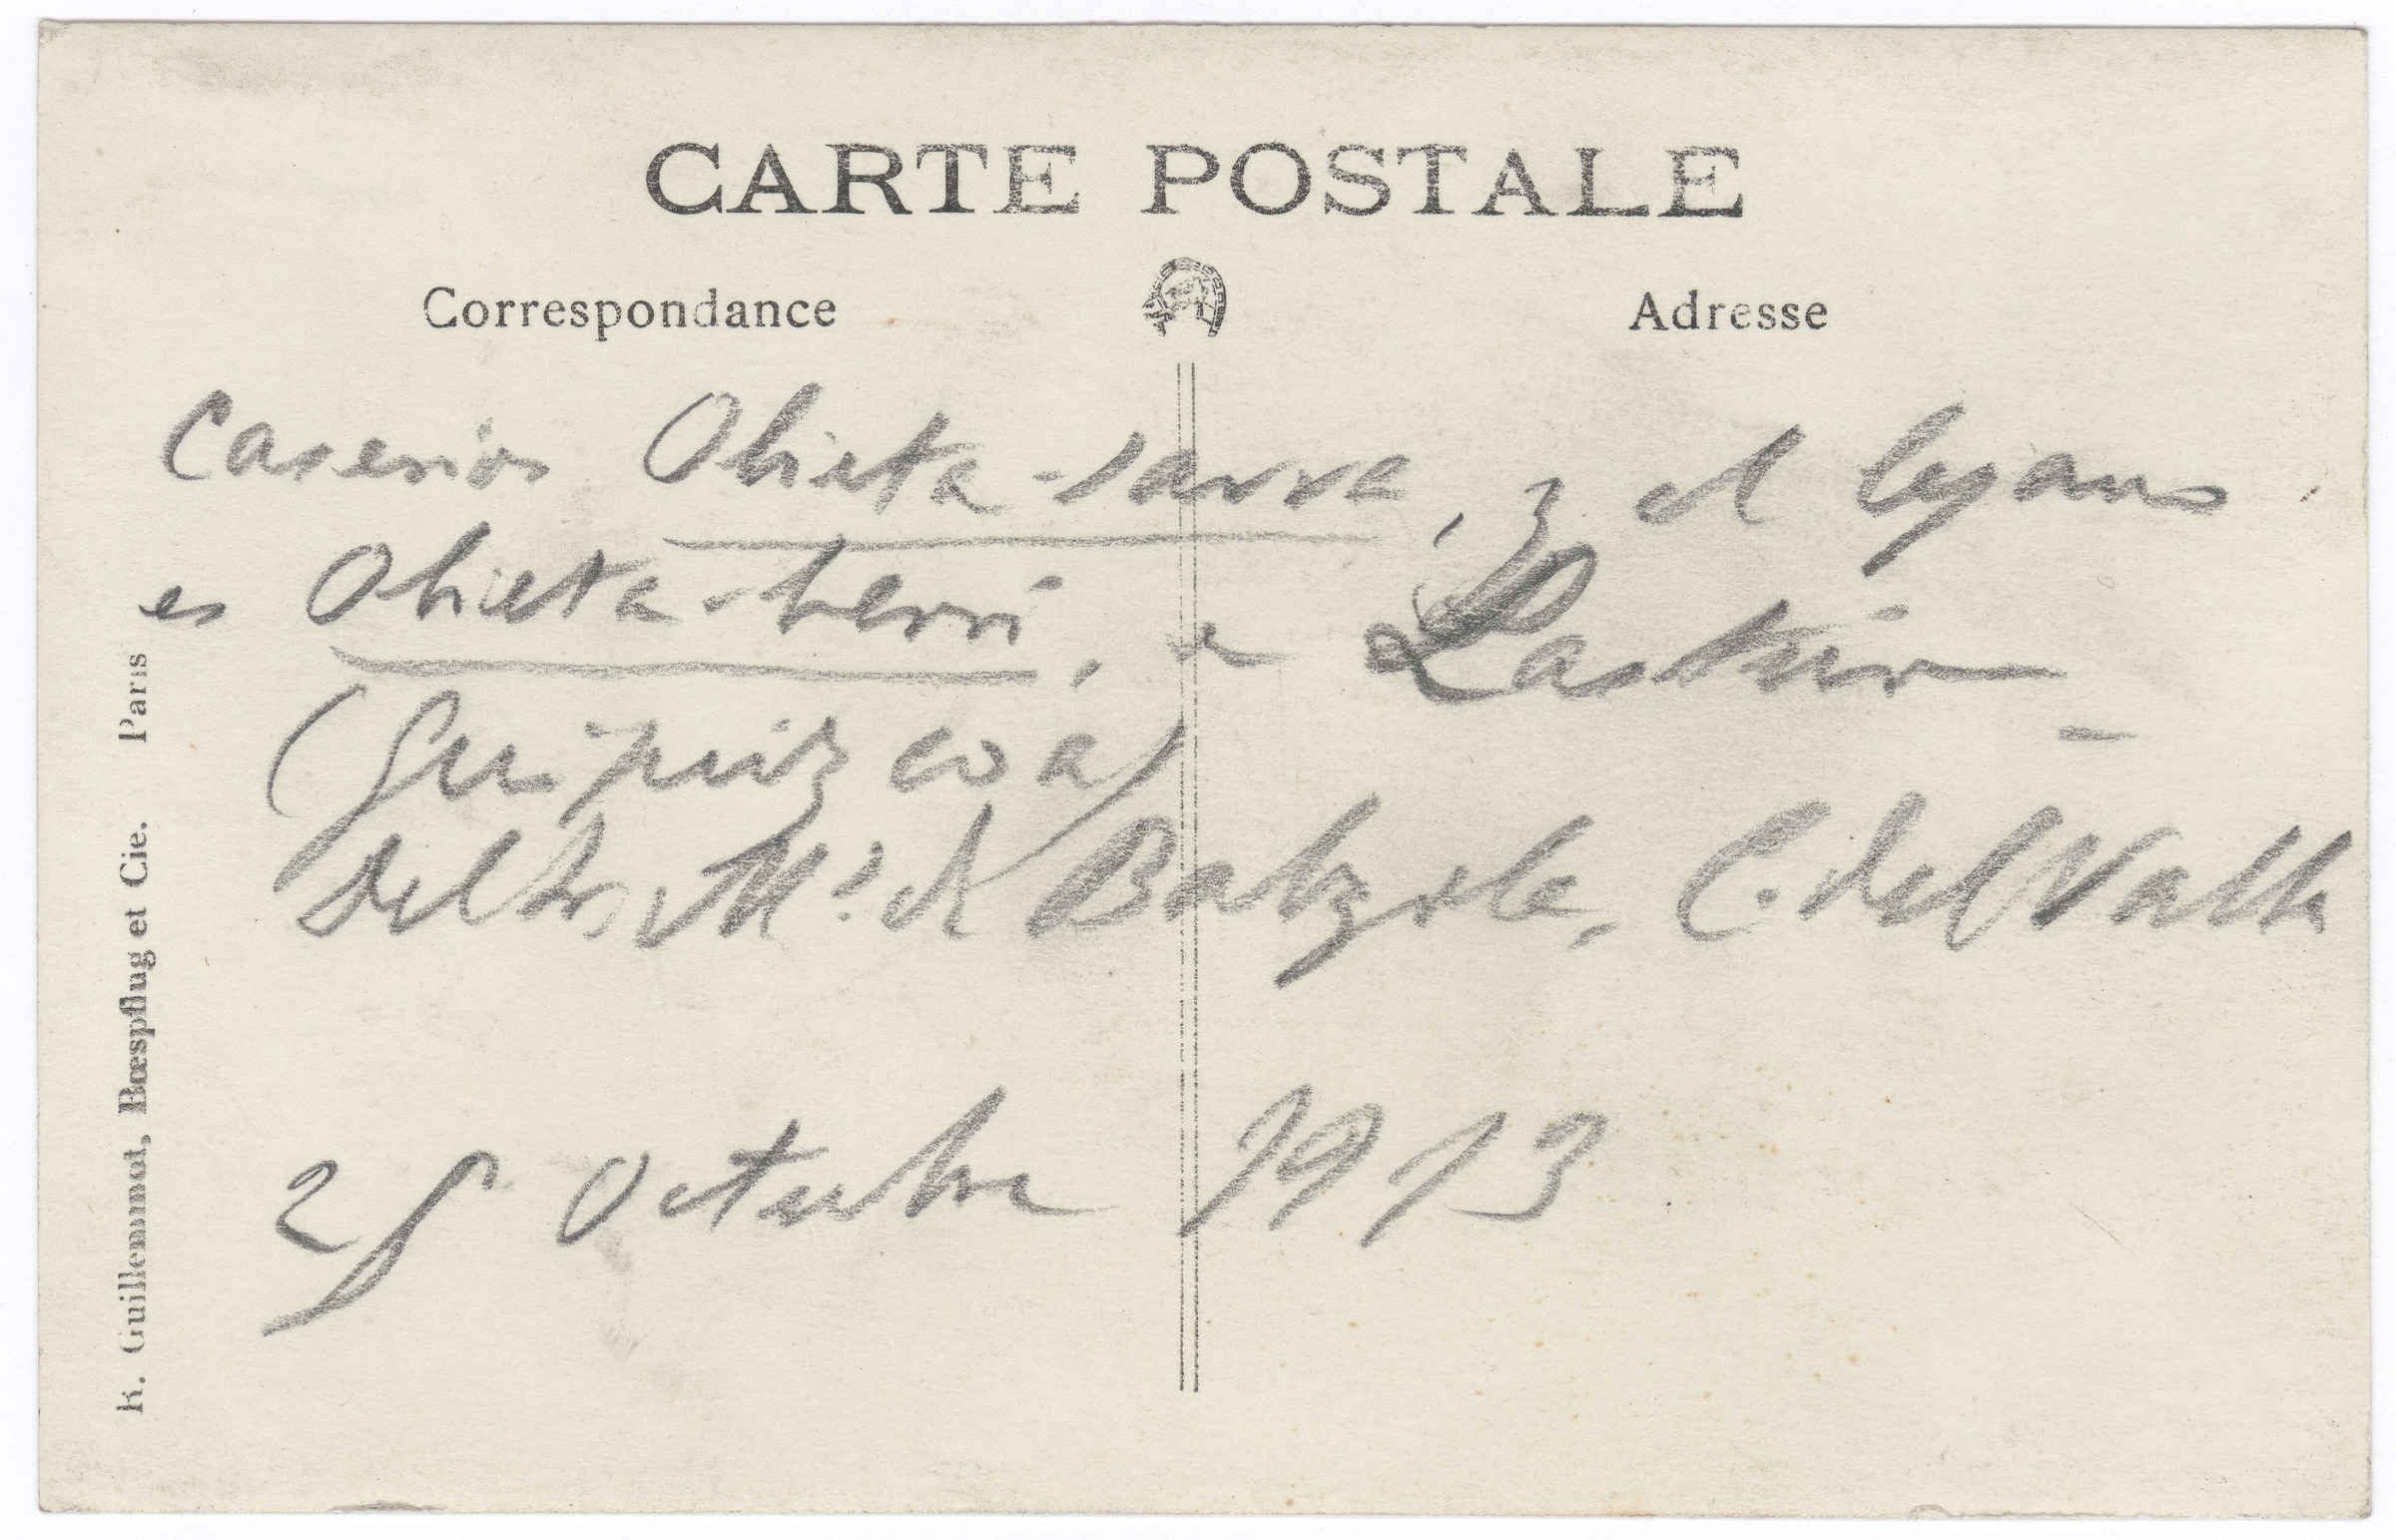 CARTE POSTALE
Correspondance
Adresse
Caserios Obieta-sarra, y el lejano
es Obieta-berri, a Lastur
(Guipúzcoa)
de Balzola, C. del Valle
25 Octubre 1913
R. Guillemnot, Bœspflug et Cie. Paris